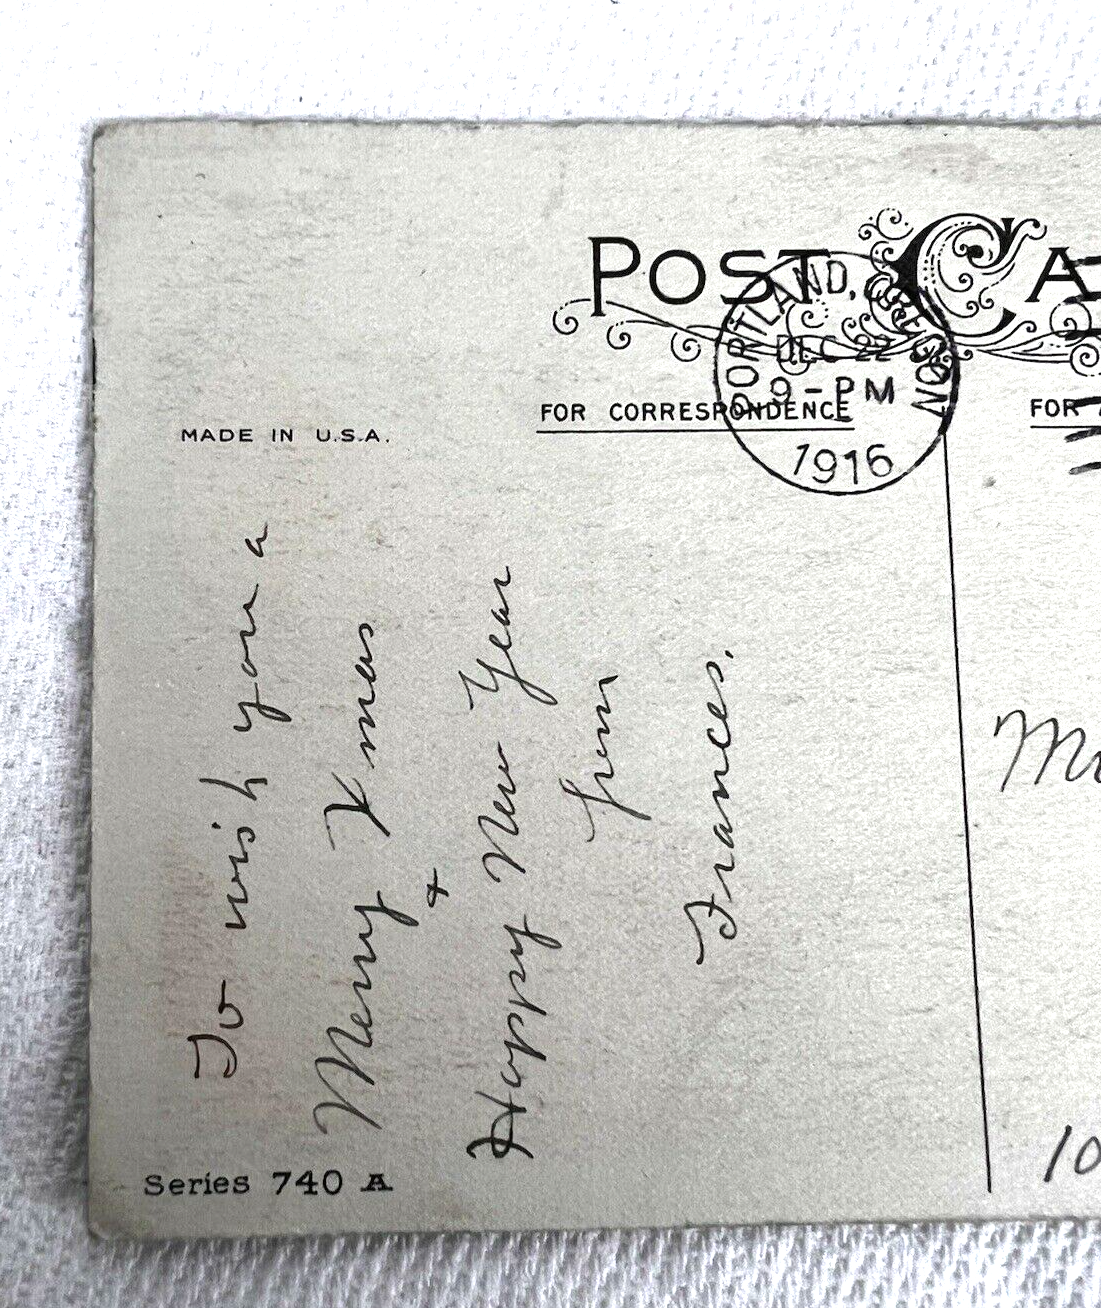 POST CA
PORTLAND, OREGON
DEC 22
9-PM
1916
FOR CORRESPONDENCE
FOR
MADE IN U.S.A.
To wish you a
Merry Xmas
+
Happy New Year
from
Frances.
10
Series 740 A